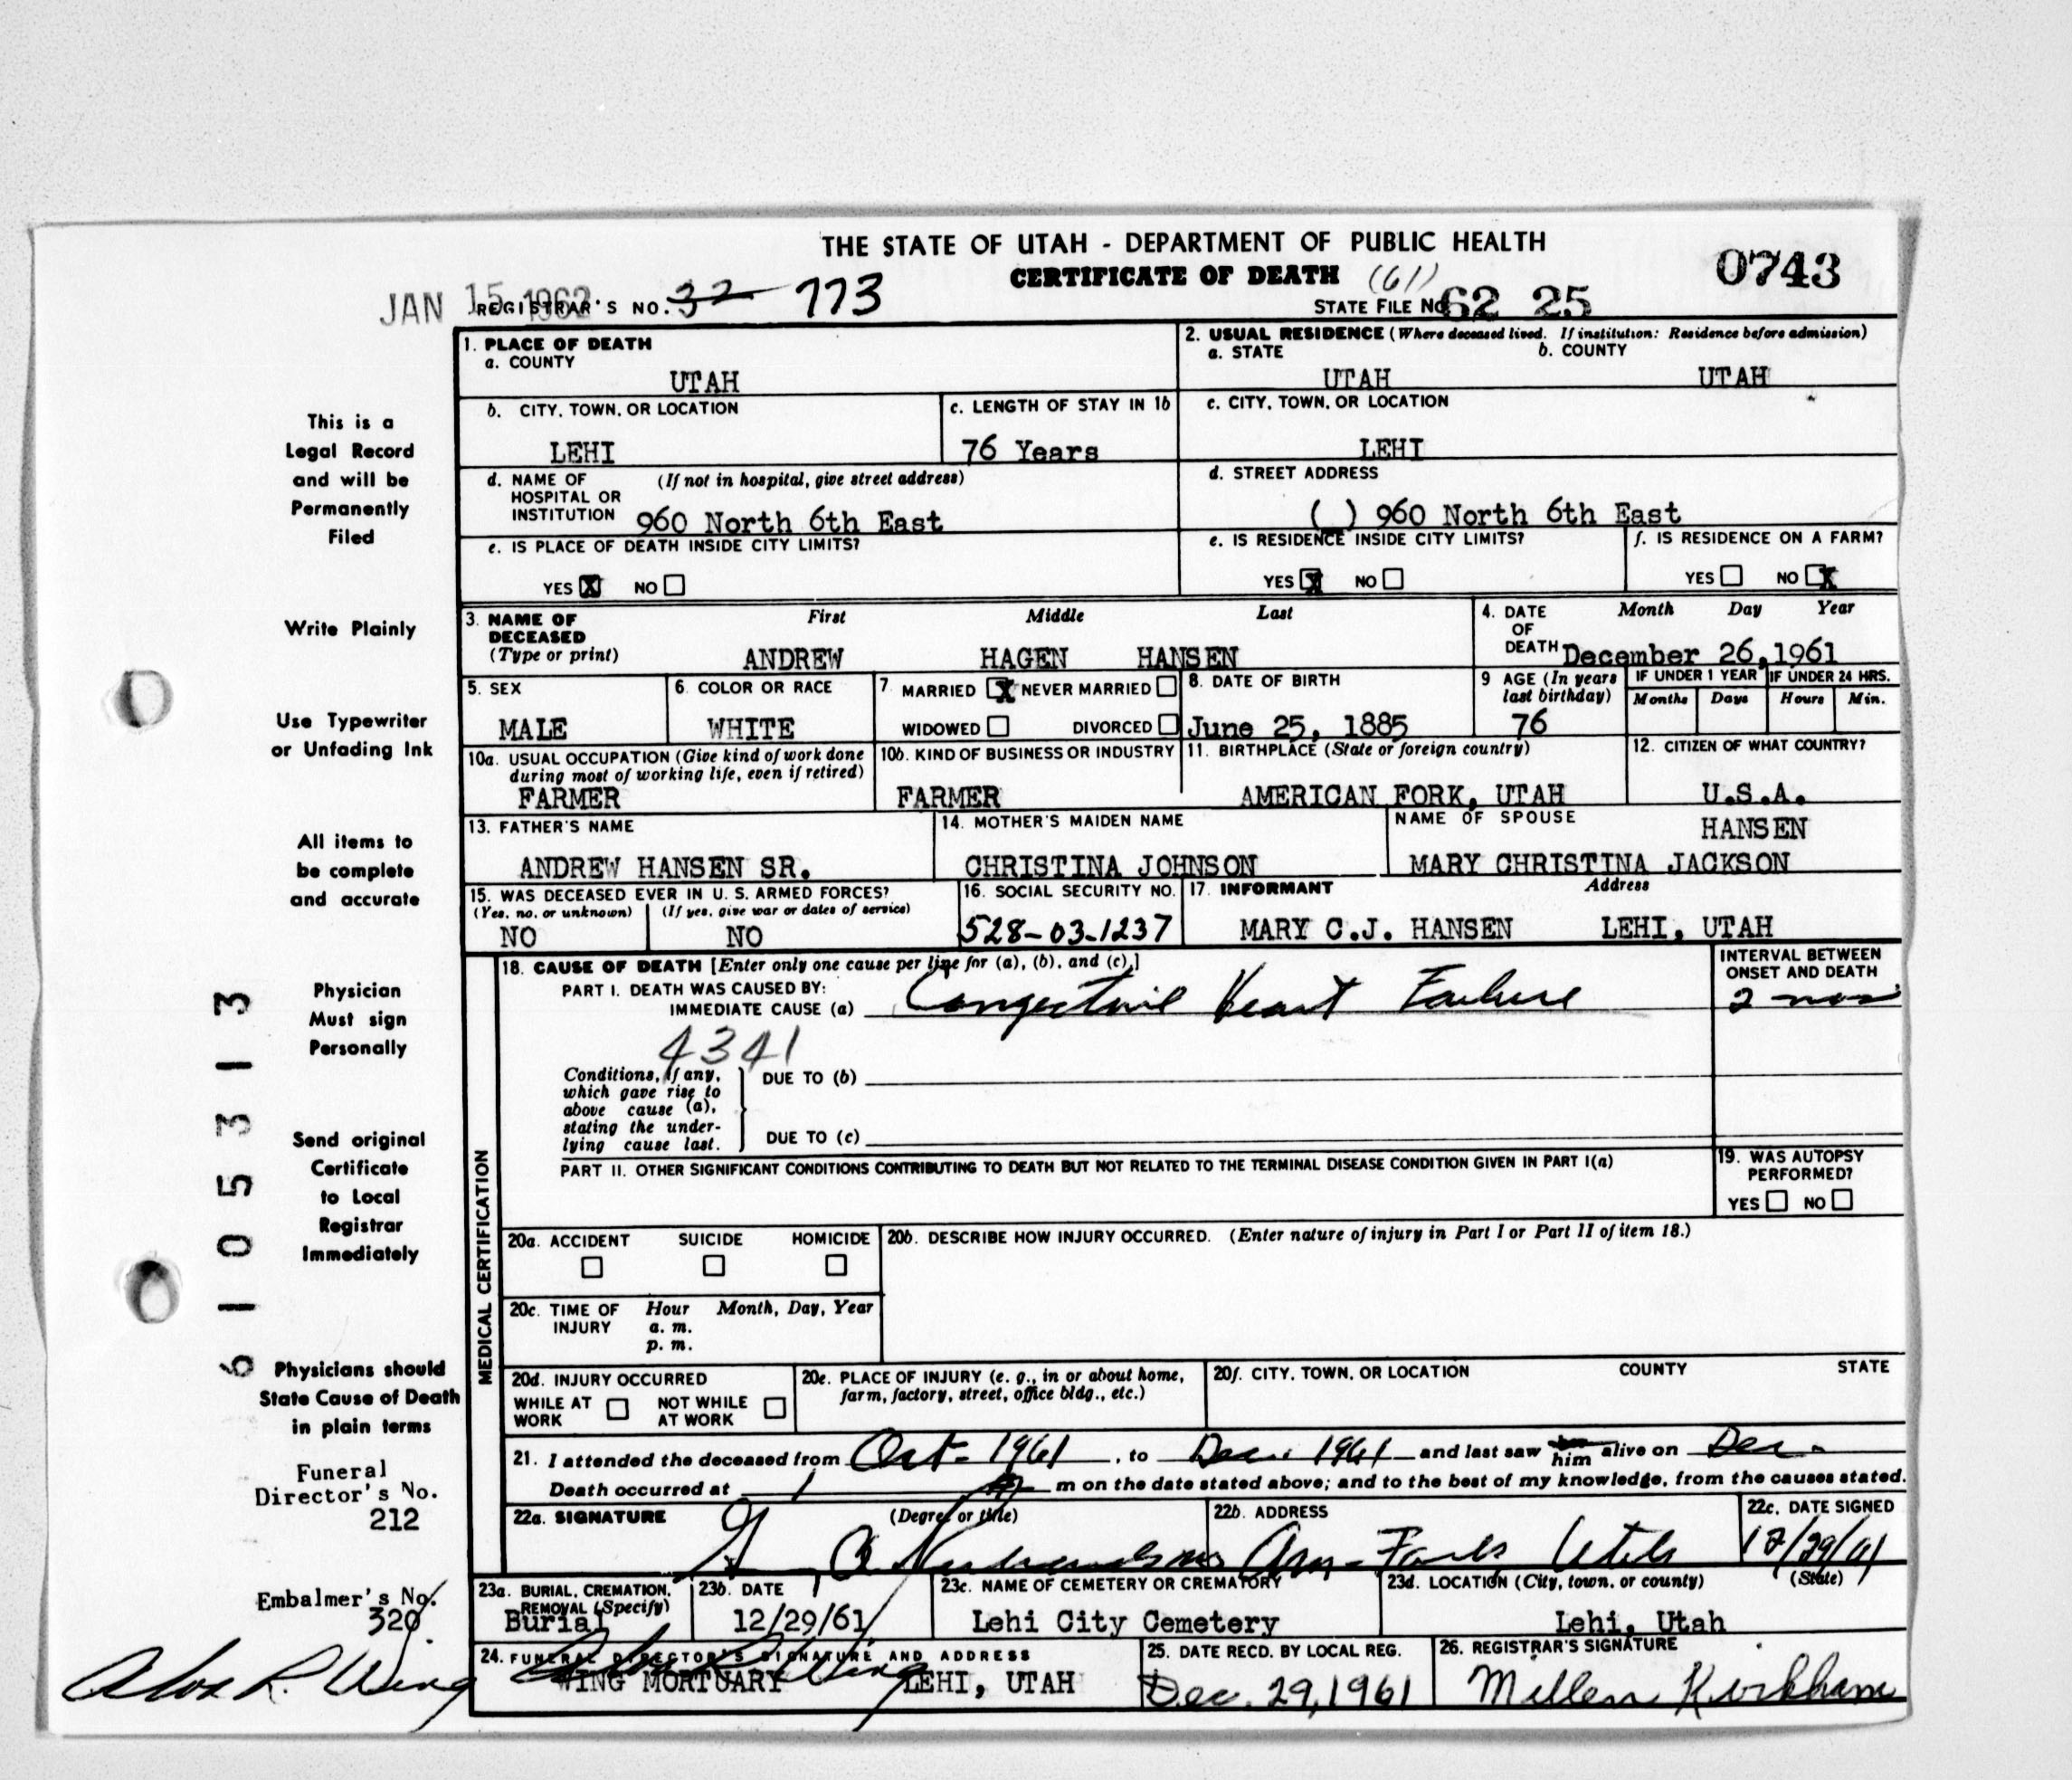 THE STATE OF UTAH - DEPARTMENT OF PUBLIC HEALTH
CERTIFICATE OF DEATH (61)
0743
JAN 15 1962
REGISTRAR'S NO. 32 773
STATE FILE NO. 62 25
1. PLACE OF DEATH
a. COUNTY
UTAH
2. USUAL RESIDENCE (Where deceased lived. If institution: Residence before admission)
a. STATE b. COUNTY
UTAH UTAH
b. CITY, TOWN, OR LOCATION
LEHI
c. LENGTH OF STAY IN 1b
76 Years
c. CITY, TOWN, OR LOCATION
LEHI
d. NAME OF HOSPITAL OR INSTITUTION (If not in hospital, give street address)
960 North 6th East
d. STREET ADDRESS
( ) 960 North 6th East
e. IS PLACE OF DEATH INSIDE CITY LIMITS?
YES X NO
e. IS RESIDENCE INSIDE CITY LIMITS?
YES X NO
f. IS RESIDENCE ON A FARM?
YES NO X
3. NAME OF DECEASED (Type or print)
First Middle Last
ANDREW HAGEN HANSEN
4. DATE OF DEATH Month Day Year
December 26, 1961
5. SEX
MALE
6. COLOR OR RACE
WHITE
7. MARRIED X NEVER MARRIED
WIDOWED DIVORCED
8. DATE OF BIRTH
June 25, 1885
9 AGE (In years last birthday)
76
IF UNDER 1 YEAR IF UNDER 24 HRS.
Months Days Hours Min.
10a. USUAL OCCUPATION (Give kind of work done during most of working life, even if retired)
FARMER
10b. KIND OF BUSINESS OR INDUSTRY
FARMER
11. BIRTHPLACE (State or foreign country)
AMERICAN FORK, UTAH
12. CITIZEN OF WHAT COUNTRY?
U.S.A.
13. FATHER'S NAME
ANDREW HANSEN SR.
14. MOTHER'S MAIDEN NAME
CHRISTINA JOHNSON
NAME OF SPOUSE
HANSEN
MARY CHRISTINA JACKSON
15. WAS DECEASED EVER IN U. S. ARMED FORCES?
(Yes, no, or unknown) (If yes, give war or dates of service)
NO NO
16. SOCIAL SECURITY NO.
528-03-1237
17. INFORMANT Address
MARY C.J. HANSEN LEHI, UTAH
MEDICAL CERTIFICATION
18. CAUSE OF DEATH [Enter only one cause per line for (a), (b), and (c).]
PART I. DEATH WAS CAUSED BY:
IMMEDIATE CAUSE (a) Congestive Heart Failure
INTERVAL BETWEEN ONSET AND DEATH
2 mos
4341
Conditions, if any, which gave rise to above cause (a), stating the underlying cause last.
DUE TO (b)
DUE TO (c)
PART II. OTHER SIGNIFICANT CONDITIONS CONTRIBUTING TO DEATH BUT NOT RELATED TO THE TERMINAL DISEASE CONDITION GIVEN IN PART I(a)
19. WAS AUTOPSY PERFORMED?
YES NO
20a. ACCIDENT SUICIDE HOMICIDE
20b. DESCRIBE HOW INJURY OCCURRED. (Enter nature of injury in Part I or Part II of item 18.)
20c. TIME OF INJURY Hour Month, Day, Year
a. m.
p. m.
20d. INJURY OCCURRED
WHILE AT WORK NOT WHILE AT WORK
20e. PLACE OF INJURY (e. g., in or about home, farm, factory, street, office bldg., etc.)
20f. CITY, TOWN, OR LOCATION COUNTY STATE
21. I attended the deceased from Oct- 1961, to Dec. 1961 and last saw him alive on Dec.
Death occurred at 1 m on the date stated above; and to the best of my knowledge, from the causes stated.
22a. SIGNATURE (Degree or title)
22b. ADDRESS
Am- Fork Utah
22c. DATE SIGNED
12/29/61
23a. BURIAL, CREMATION, REMOVAL (Specify)
Burial
23b. DATE
12/29/61
23c. NAME OF CEMETERY OR CREMATORY
Lehi City Cemetery
23d. LOCATION (City, town, or county) (State)
Lehi, Utah
24. FUNERAL DIRECTOR'S SIGNATURE AND ADDRESS
WING MORTUARY LEHI, UTAH
25. DATE RECD. BY LOCAL REG.
Dec. 29, 1961
26. REGISTRAR'S SIGNATURE
Kirkham
This is a
Legal Record
and will be
Permanently
Filed
Write Plainly
Use Typewriter
or Unfading Ink
All items to
be complete
and accurate
Physician
Must sign
Personally
Send original
Certificate
to Local
Registrar
Immediately
Physicians should
State Cause of Death
in plain terms
Funeral
Director's No.
212
Embalmer's No.
320
Wing
6 1 0 5 3 1 3